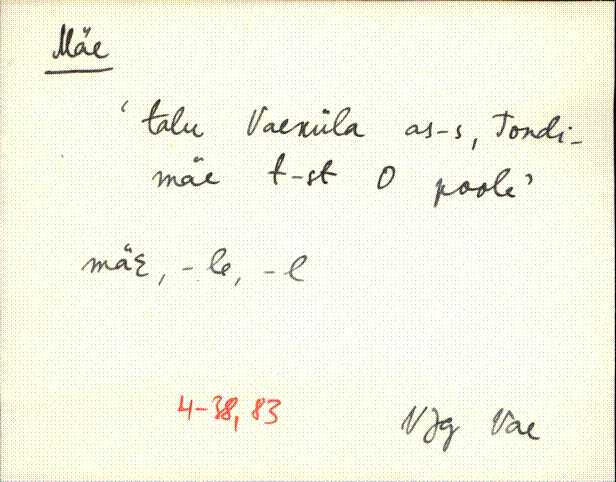 Mäe
‘talu Vaeküla as-s, Tondi-
mäe t-st O poole’
mäɛ, -le, -l
4-38, 83
VJg Vae